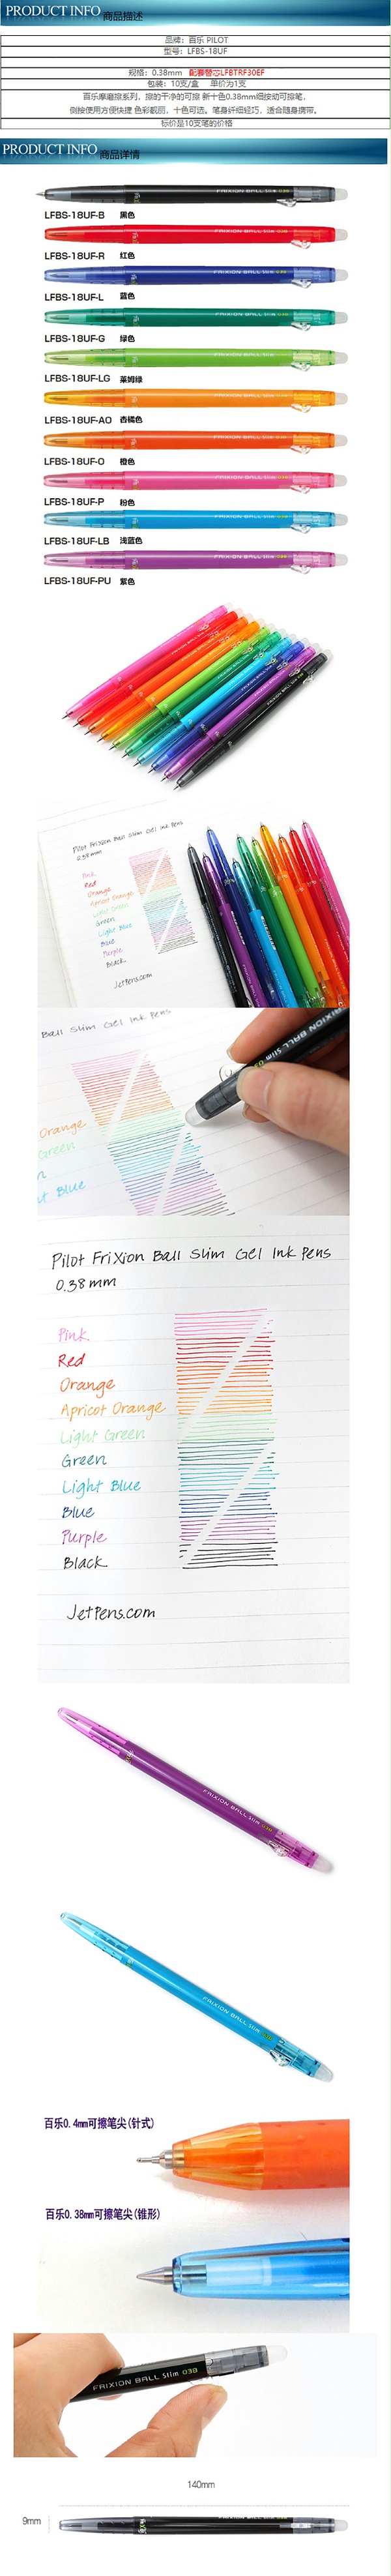 PRODUCT INFO 商品描述
品牌：百乐 PILOT
型号：LFBS-18UF
规格：0.38mm 配套替芯LFBTRF30EF
包装：10支/盒 单价为1支
百乐摩磨擦系列，擦的干净的可擦 新十色0.38mm细按动可擦笔，
侧按使用方便快捷 色彩靓丽，十色可选。笔身纤细轻巧，适合随身携带。
标价是10支笔的价格
PRODUCT INFO 商品详情
FRIXION BALL Slim 038
LFBS-18UF-B 黑色
FRIXION BALL Slim 038
LFBS-18UF-R 红色
FRIXION BALL Slim 038
LFBS-18UF-L 蓝色
FRIXION BALL Slim 038
LFBS-18UF-G 绿色
FRIXION BALL Slim 038
LFBS-18UF-LG 莱姆绿
FRIXION BALL Slim 038
LFBS-18UF-AO 杏橘色
FRIXION BALL Slim 038
LFBS-18UF-O 橙色
FRIXION BALL Slim 038
LFBS-18UF-P 粉色
FRIXION BALL Slim 038
LFBS-18UF-LB 浅蓝色
FRIXION BALL Slim 038
LFBS-18UF-PU 紫色
Pilot Frixion Ball Slim Gel Ink Pens
0.38mm
Pink
Red
Orange
Apricot Orange
Light Green
Green
Light Blue
Blue
Purple
Black
JetPens.com
Ball Slim Gel Ink Pens
RIXION BALL Slim 03
Orange
Green
n
ut Blue
Pilot FriXion Ball Slim Gel Ink Pens
0.38mm
Pink
Red
Orange
Apricot Orange
Light Green
Green
Light Blue
Blue
Purple
Black
JetPens.com
FRIXION BALL Slim 038
FRIXION BALL Slim 038
百乐0.4mm可擦笔尖(针式)
百乐0.38mm可擦笔尖(锥形)
FRIXION BALL Slim 038
140mm
9mm
FRIXION BALL Slim 038